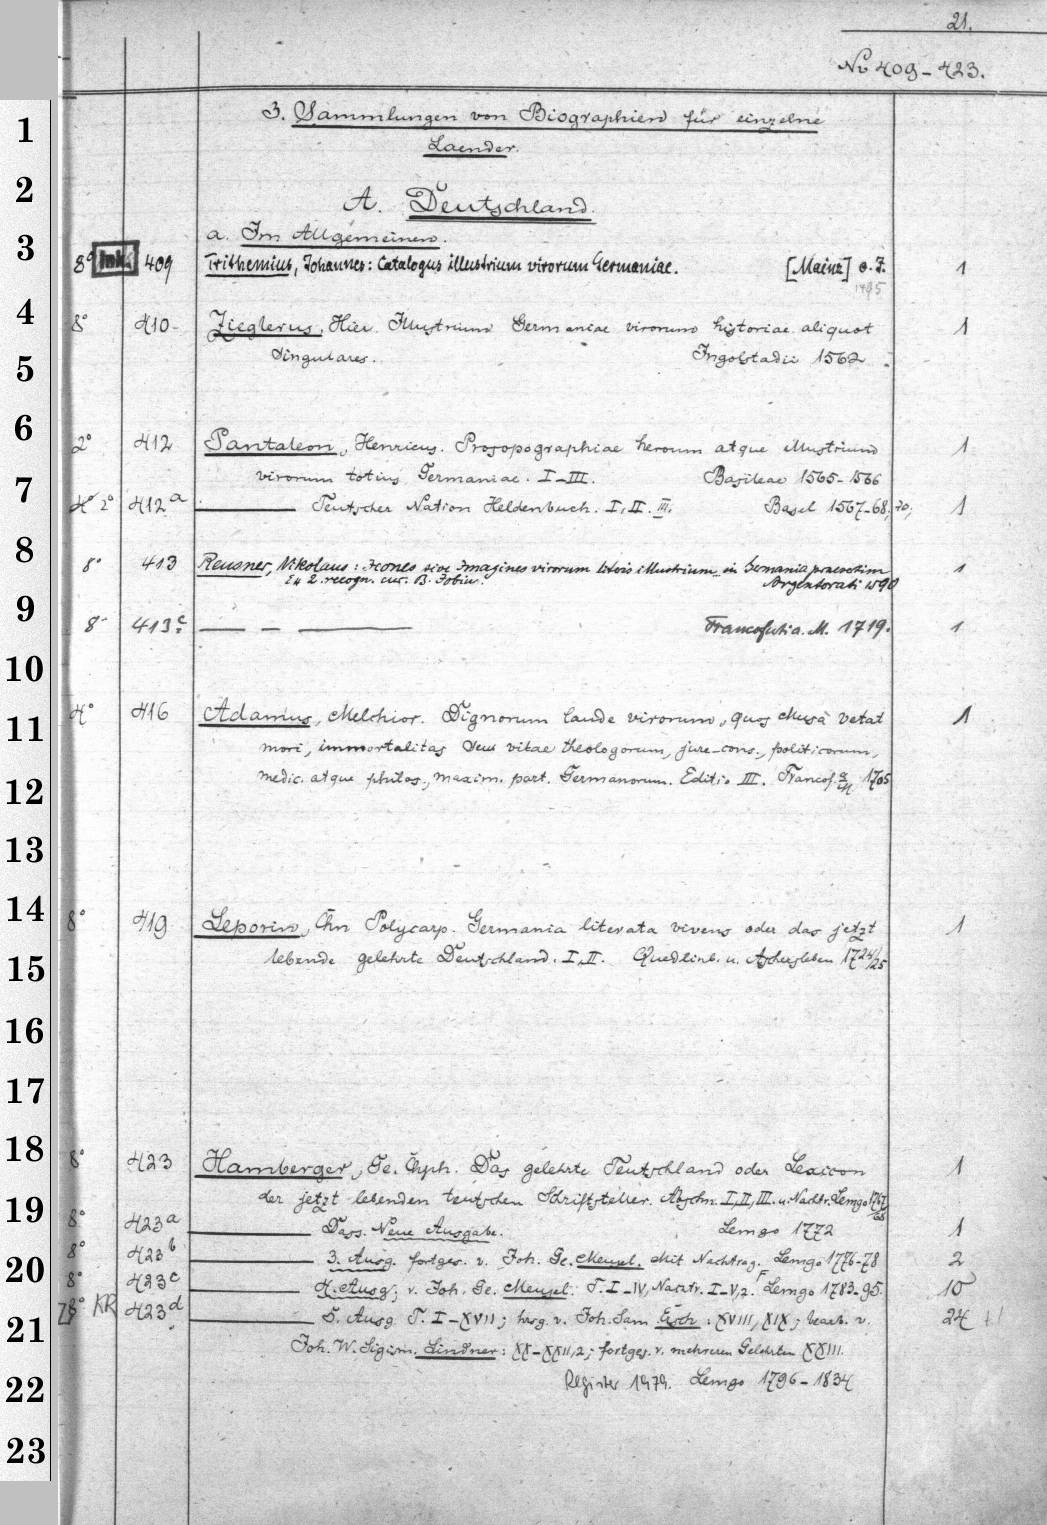 21.
No 409-423.
3. Sammlungen von Biographien für einzelne
Laender.
A. Deutschland.
a. Im Allgemeinen.
8° Ink. 409 Trithemius, Johannes: Catalogus illustrium virorum Germaniae. [Mainz] o. J. 1
1495
8° 410 Zieglerus, Hier. Illustrium Germaniae virorum historiae aliquot 1
singulares. Ingolstadii 1562
2° 412 Pantaleon, Henricus. Prosopographiae heroum atque illustrium 1
virorum totius Germaniae. I-III. Basileae 1565-1566
4° 2° 412a Teutscher Nation Heldenbuch. I, II. III. Basel 1567-68; 70; 1
8° 413 Reusner, Nikolaus: Icones sive Imagines virorum literis illustrium in Germania praesertim 1
Ex 2. recogn. cur. B. Jobin. Argentorati 1590
8° 413c Francofurti a. M. 1719. 1
4° 416 Adamus, Melchior. Dignorum laude virorum, quos Musa vetat 1
mori, immortalitas seu vitae theologorum, jure-cons., politicorum,
medic. atque philos., maxim. part. Germanorum. Editio III. Francof. 1705
8° 419 Leporin, Chn Polycarp. Germania literata vivens oder das jetzt 1
lebende gelehrte Deutschland. I, II. Quedlinb. u. Aschersleben 1724/25
8° 423 Hamberger, Ge. Chph. Das gelehrte Teutschland oder Lexicon 1
der jetzt lebenden teutschen Schriftsteller. Abschn. I, II, III. u. Nachtr. Lemgo 1767/68
8° 423a Dass. Neue Ausgabe. Lemgo 1772 1
8° 423b 3. Ausg. fortges. v. Joh. Ge. Meusel. Mit Nachtrag. Lemgo 1776-78 2
8° 423c 4. Ausg. v. Joh. Ge. Meusel. T. I-IV, Nachtr. I-V,2. Lemgo 1783-95. 10
8° KR 423d 5. Ausg. T. I-XVII; hrsg. v. Joh. Sam Ersch: XVIII, XIX; bearb. v. 24
Joh. W. Sigism. Lindner: XX-XXII,2; fortges. v. mehreren Gelehrten XXIII.
Register 1979. Lemgo 1796-1834
1
2
3
4
5
6
7
8
9
10
11
12
13
14
15
16
17
18
19
20
21
22
23